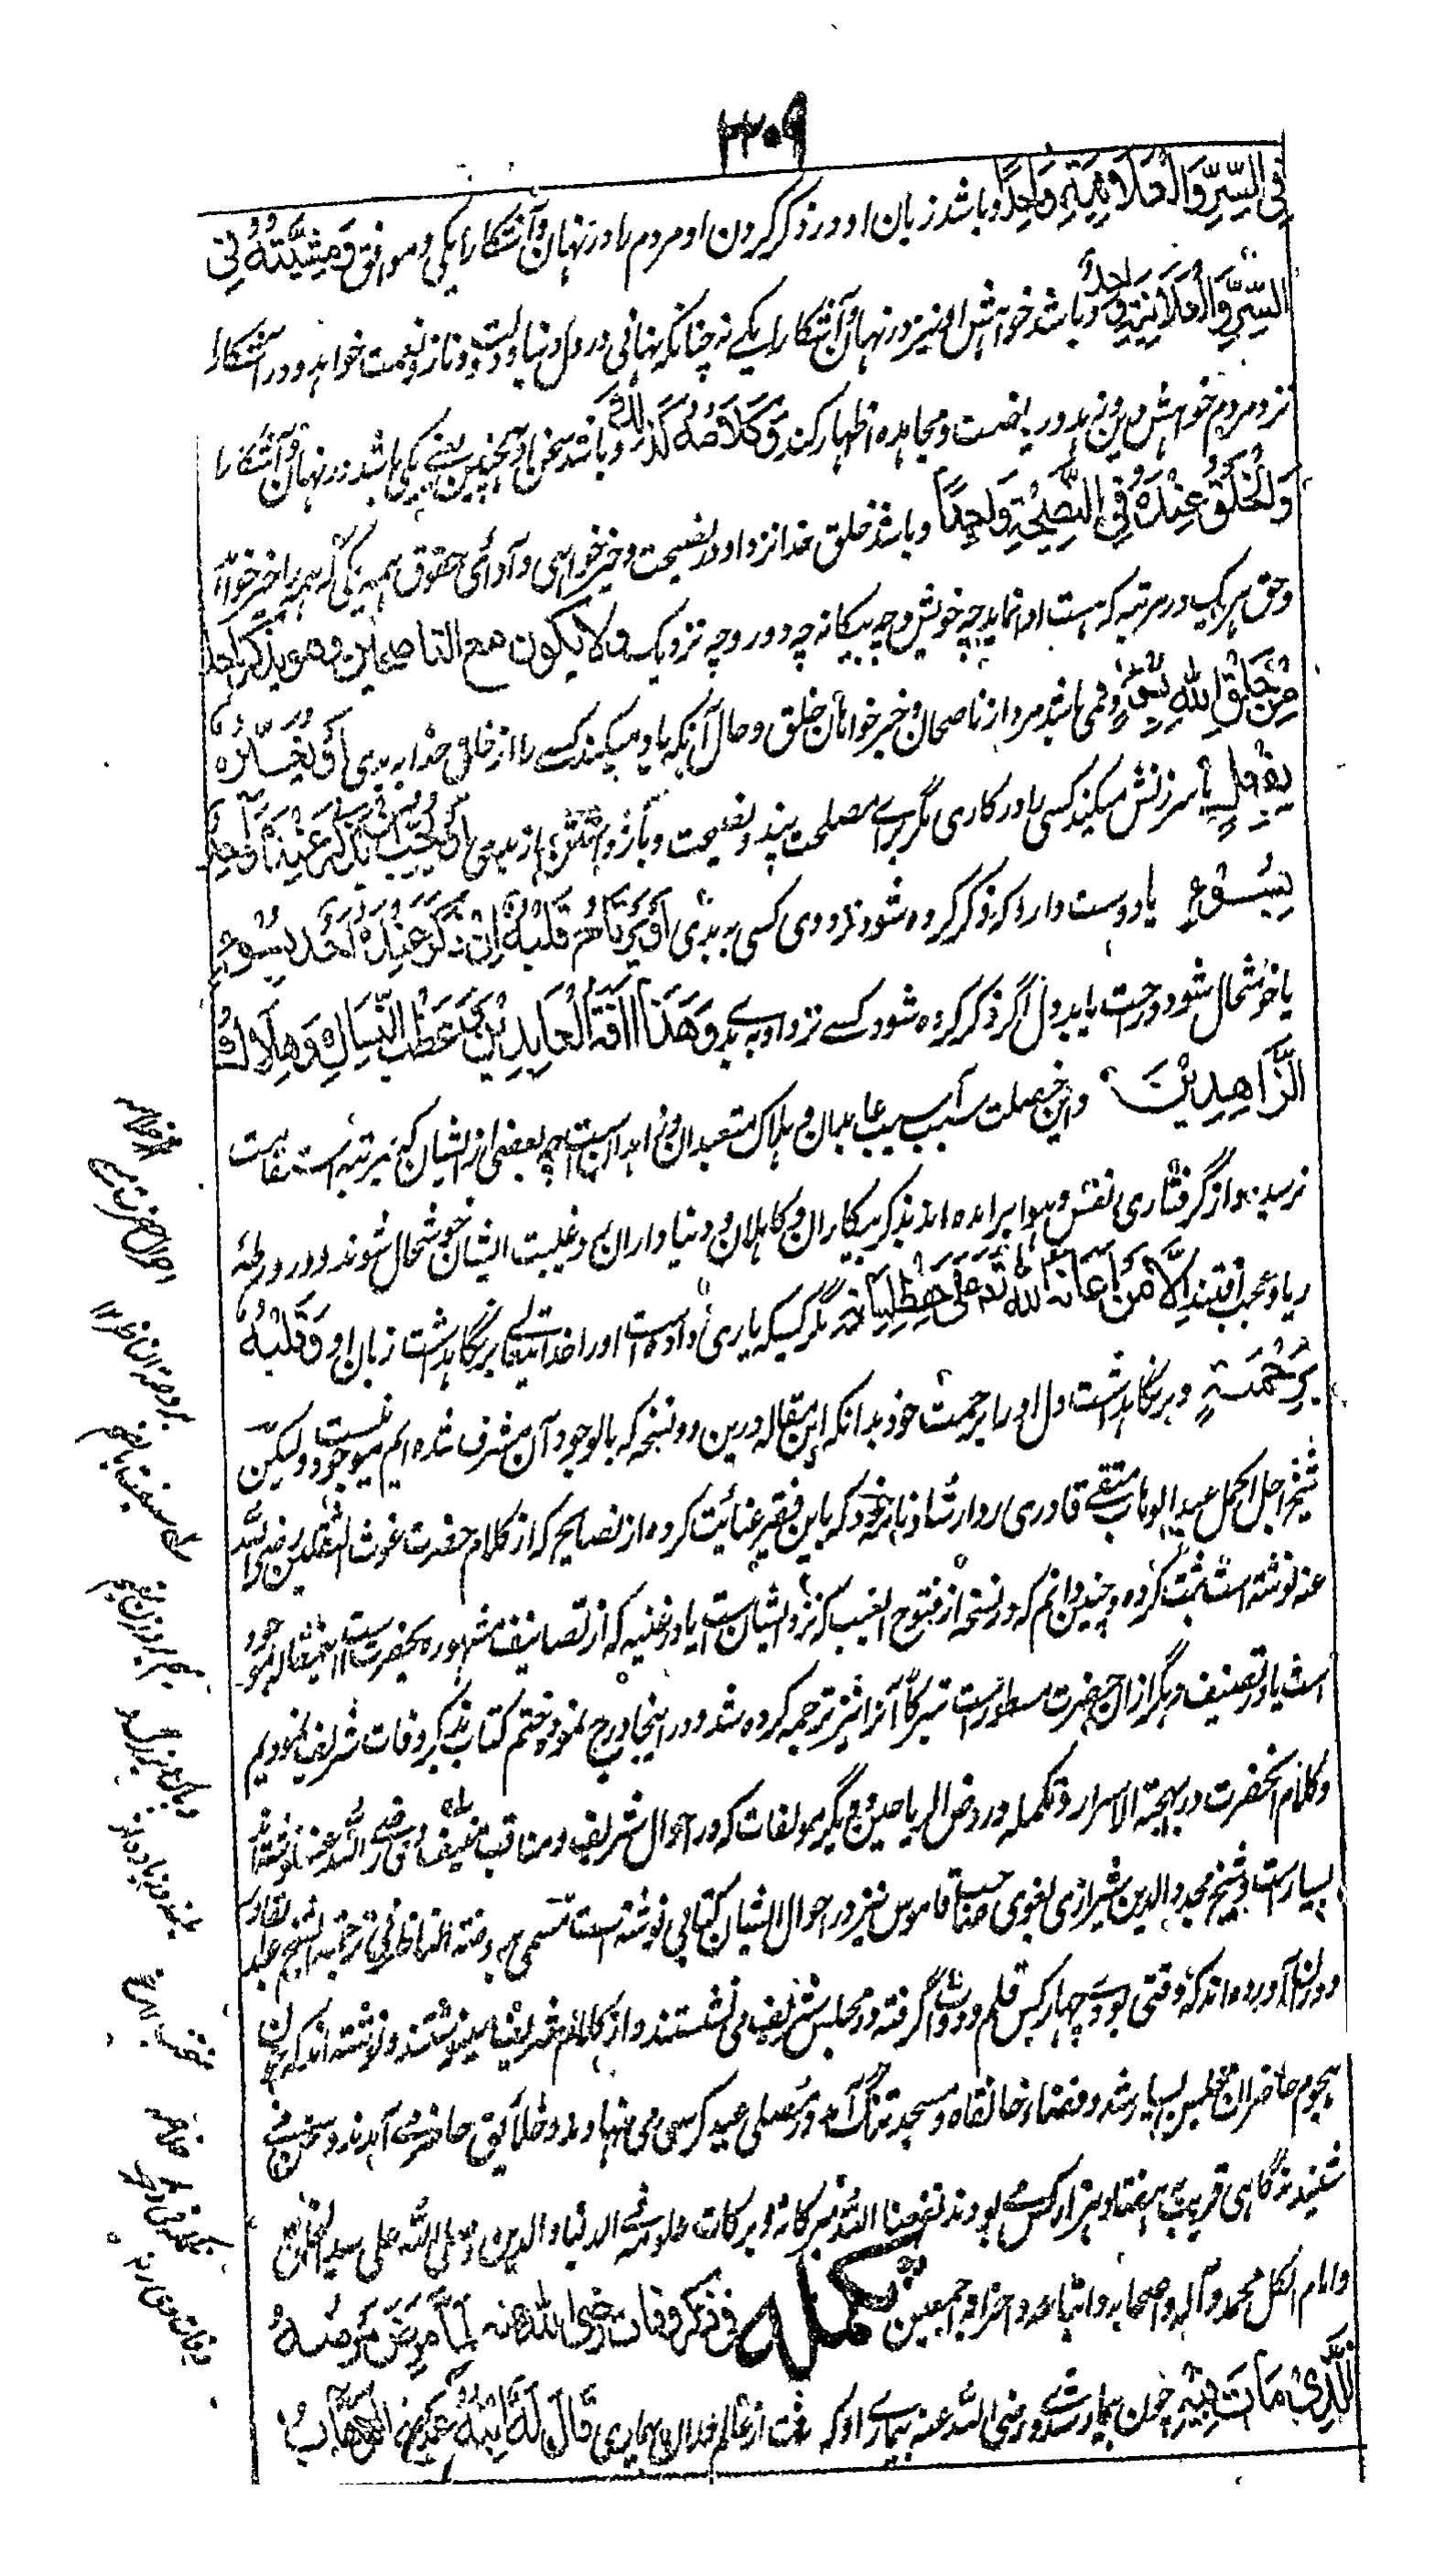 ۴۰۹
فِي السِّرِّ وَالْعَلَانِيَةِ وَاحِدًا و باشد زبان او در ذکر کردن او مردم را در نهان و آشکارا یکی و موافق وَمَشِيَّتُهُ فِي
السِّرِّ وَالْعَلَانِيَةِ وَاحِدَةً و باشد خواهش او نیز در نهان و آشکارا یکے نہ چنانکہ نهانی در دل دنیا و دولت و ناز و نعمت خواهد و در آشکارا
نزد مردم خواهش دین و زهد و ریاضت و مجاهده اظهار کند وَكَلَامُهُ كَذَلِكَ و باشد سخن او همچنین یعنے یکی باشد در نهان و آشکارا
وَالْخَلْقُ عِنْدَهُ فِي النَّصِيْحَةِ وَاحِدًا و باشد خلق خدا نزد او در نصیحت و خیرخواهی و ادائی حقوق همه یکی که همه را خیر خواهد
و حق هر یک در مرتبه که هست ادا نماید چه خویش و چه بیگانه چه دور و چه نزدیک ولا یکون مع الناصحین وهو یذکر احدا
مِنْ خَلْقِ اللهِ بِسُوْءٍ و نمی باشد مرد از ناصحان و خیرخواهان خلق و حال آنکه یاد میکند کسے را از خلق خدا به بدی أَوْ يُعَيِّرُهُ
بِفِعْلٍ یا سرزنش میکند کسی را در کاری مگر برای مصلحت پند و نصیحت و بازداشتن از بدی أَوْ يُحِبُّ أَنْ يُذْكَرَ عِنْدَهُ أَحَدٌ
بِسُوْءٍ یا دوست دارد که ذکر کرده شود نزد وی کسی به بدی أَوْ يَرْتَاحُ قَلْبُهُ إِنْ ذُكِرَ عِنْدَهُ أَحَدٌ بِسُوْءٍ
یا خوشحال شود و راحت یابد دل اگر ذکر کرده شود کسے نزد او به بدی وَهَذَا آفَةُ الْعَابِدِيْنَ وَعَطَبُ النُّسَّاكِ وَهَلَاكُ
الزَّاهِدِيْنَ و این خصلت سبب آسیب عابدان و هلاک متعبدان و زاهدان ست چه بعضی از ایشان که بمرتبه استقامت
نرسیده و از گرفتاری نفس و هوا برآمده اند بذکر بیکاران و کاهلان و دنیاداران بدی و غیبت ایشان خوشحال شوند و در ورطه
ریا و عجب افتند إِلَّا مَنْ أَعَانَهُ اللهُ عَلَى حِفْظِ لِسَانِهِ مگر کسیکه یاری داده است او را خدا تعالے بر نگاهداشت زبان او وَقَلْبِهِ
بِرَحْمَتِهِ و بر نگاهداشت دل او را برحمت خود بدانکه این مقاله درین دو نسخه که بالوجود آن مشرف شده ایم موجود نیست ولیکن
شیخ اجل اکمل عبدالوهاب متقے قادری در ارشاد نامه خود که باین فقیر عنایت کرده از نصایح که از کلام حضرت غوث الثقلین رضی الله
عنه نوشته است ثبت کرده و چنین دانم که در نسخه از فتوح الغیب که نزد ایشان ست یا در غنیه که از تصانیف مشهوره حضرت ست این مقاله موجود
است یا در تصنیف دیگر از آن حضرت مسطور است تبرکا آنرا نیز ترجمه کرده شد و در اینجا درج نموده ختم کتاب بذکر وفات شریف نمودیم
و کلام آنحضرت در بهجة الاسرار و تکمله و روض الریاحین و دیگر مولفات که در احوال شریف و مناقب منیف وی رضی الله عنه نوشته اند
بسیار است و شیخ مجدالدین شیرازی لغوی صاحب قاموس نیز در احوال ایشان کتابی نوشته است مسمی به روضة الناظر فی ترجمة الشیخ عبدالقادر
و در آن آورده اند که وقتی بودی چهار کس قلم و دوات گرفته در مجلس شریف می نشستند و از کلام شریف مینوشتند و نوشته اند که چون
هجوم حاضران مجلس بسیار شد و فضاء خانقاه و مسجد تنگ آمد در مصلی عید کرسی می نهادند و خلایق حاضر می آمدند و سخن می
شنیدند گاهی قریب به هفتاد هزار کس می بودند نفعنا الله ببرکاته و برکات علومه فی الدنیا والدین وصلی الله علی سید الخلق
وامام الکل محمد وآله واصحابه واتباعه واحزابه اجمعین تکمله فی ذکر وفات رضی الله عنه لَمَّا مَرِضَ مَرَضَهُ
الَّذِيْ مَاتَ فِيْهِ چون بیمار شد وی رضی الله عنه بیماری او که رفت از عالم قَالَ لَهُ ابْنُهُ عَبْدُ الْوَهَّابِ